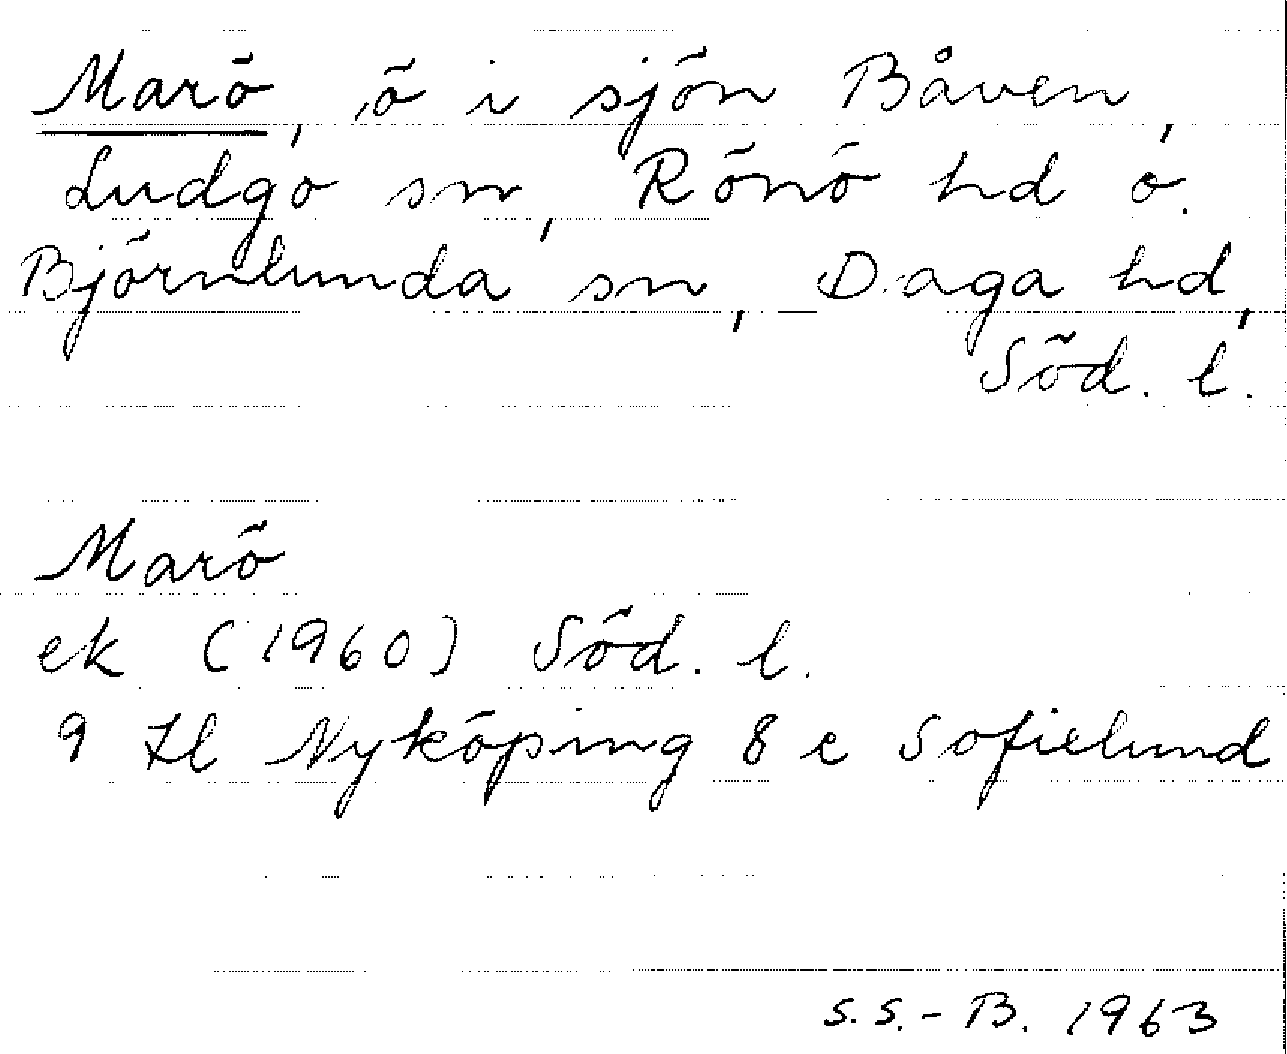 Marö, ö i sjön Båven,
Ludgo sn, Rönö hd o.
Björnlunda sn, Daga hd,
Söd. l.
Marö
ek (1960) Söd. l.
9 Nyköping 8 e Sofielund
S.S.-B. 1963